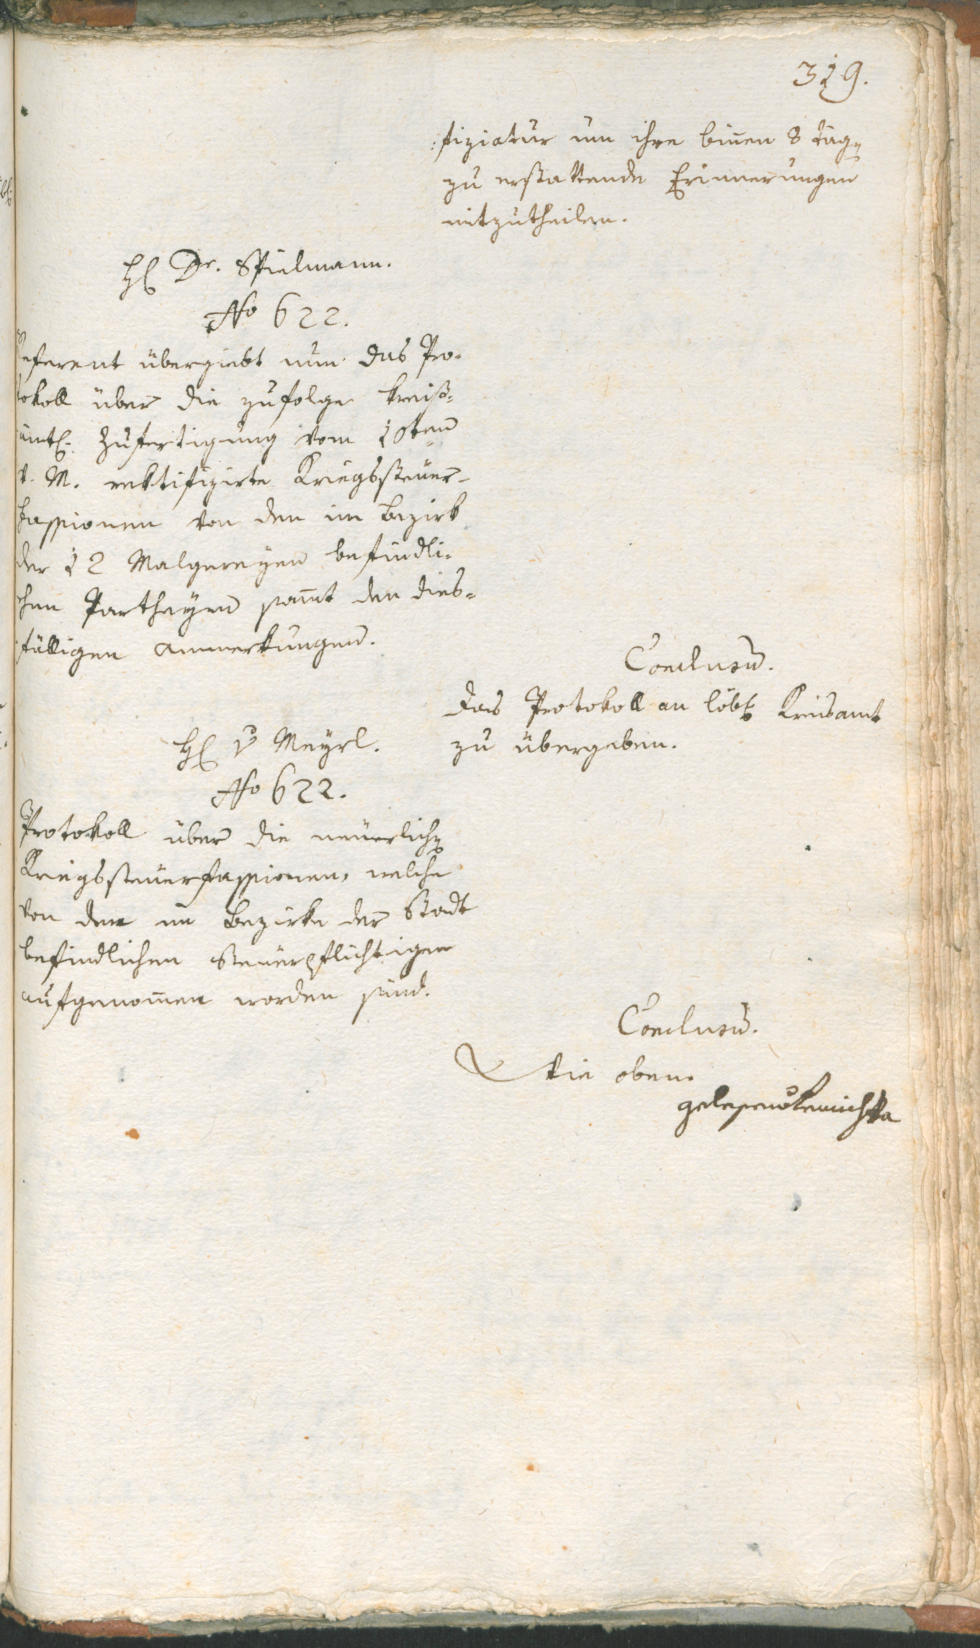 319.
fiziatur um ihre binnen 8 Tagen
zu erstattende Erinnerungen
mitzutheilen.
H. Dr. Spielmann.
No 622.
Referent übergiebt nun das Pro-
tokoll über die zufolge kreis-
ämtl. Zufertigung vom 10ten
v. M. rektifizirte Kriegssteuer-
fassionen von den im Bezirk
der 12 Malgereyen befindli-
chen Partheyen samt den dies-
fälligen Anmerkungen.
Conclusu.
Das Protokoll an löbl. Kreisamt
zu übergeben.
H. v Meyrl.
No 622.
Protokoll über die neuerlichen
Kriegssteuerfassionen, welche
von den im Bezirke der Stadt
befindlichen Steuerpflichtigen
aufgenomen worden sind.
Conclusu.
Wie oben.
gelesen